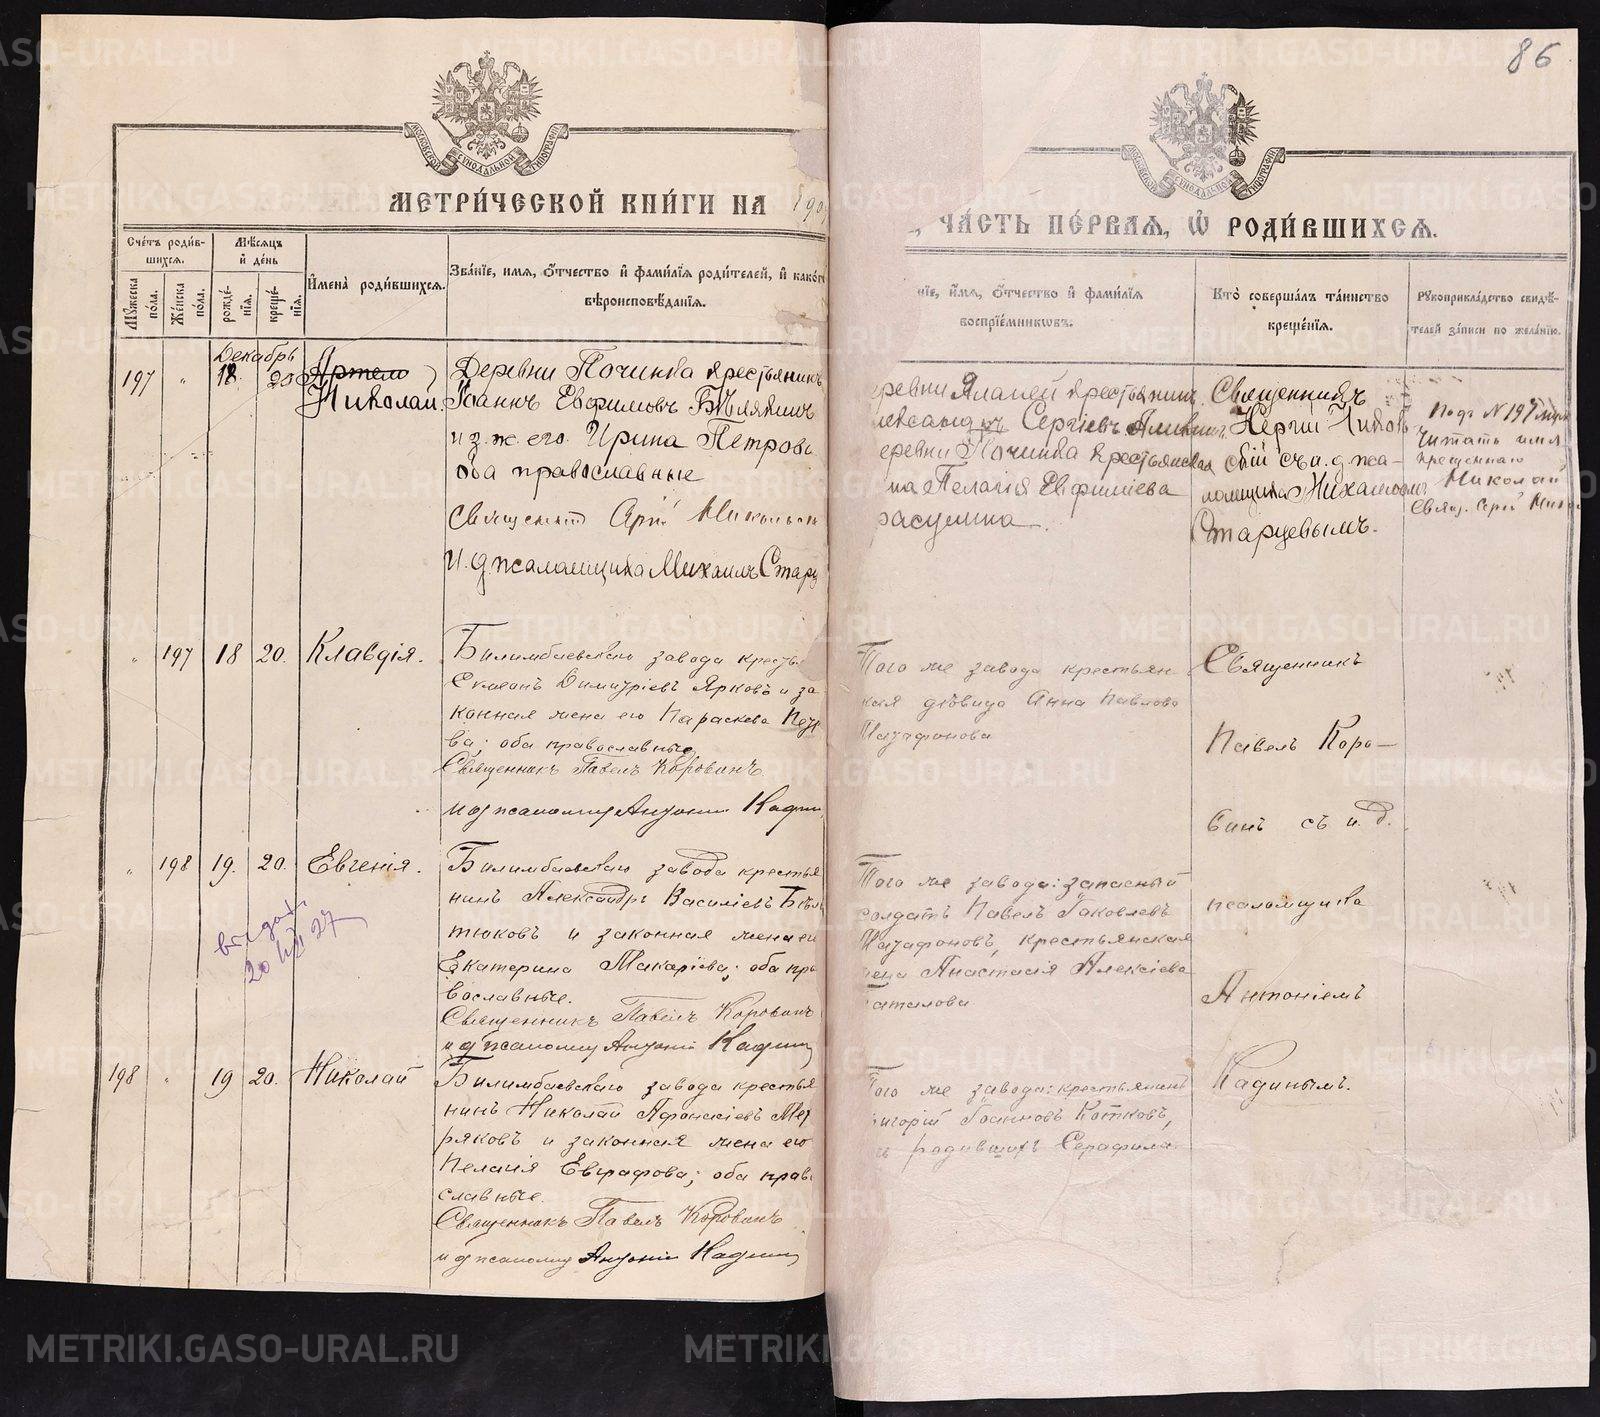 86
МЕТРИ́ЧЕСКОЙ КНИ́ГИ НА 190
ЧА́СТЬ ПЕ́РВАЯ, Ѡ РОДИ́ВШИХСЯ.
Сче́тъ роди́в-
шихся.
Мѣсяцъ
и҆ де́нь
Мꙋжеска по́ла.
Же́нска по́ла.
рожде́нїя.
креще́нїя.
И҆мена̀ роди́вшихся.
Зва́нїе, и҆́мя, ѻ҆́тчество и҆ фами́лїя роди́телей, и҆ како́гѡ
вѣроисповѣ́данїя.
нїе, и҆́мя, ѻ҆́тчество и҆ фами́лїя
воспрїе́мниковъ.
Кто̀ соверша́лъ та́инство
креще́нїя.
Рꙋкоприкла́дство свидѣ́-
телей за́писи по жела́нїю.
Декабрь
197 " 18. 20 Артемо
Николай.
Деревни Починка крестьянинъ
Іоаннъ Евфимовъ Бѣляткинъ
и з. ж. его Ирина Петрова
оба православные
Священникъ
И. д. псаломщика Михаилъ Старц
еревни крестьянинъ
Сергіевъ
еревни Починка крестьянская
Пелагія Евфиміева
Священникъ
Сергій
съ и. д. пса-
ломщика Михаиломъ
Старцевымъ.
Подъ № 197 муж
читать имя
крещеннаго
Николай
Свящ. Сергій
" 197 18 20. Клавдія.
Билимбаевскаго завода крестья
Симеонъ Димитріевъ Ярковъ и за-
конная жена его Параскева Петр
ва; оба православные.
Священникъ Павелъ Коровинъ
и д псаломщ Антоній Кадин
Того же завода крестьян-
кая дѣвица Анна Павлова
Матафонова
Священникъ
Павелъ Коро-
винъ съ и. д.
псаломщика
Антоніемъ
Кадинымъ.
" 198 19. 20. Евгенія.
Билимбаевскаго завода крестья
нинъ Александръ Василіевъ Бѣл
тюковъ и законная жена ег
Екатерина Макаріева; оба пра
вославные.
Священникъ Павелъ Коровинъ
и д псаломщ Антоній Кадин
Того же завода: запасный
солдатъ Павелъ Іаковлевъ
Матафоновъ, крестьянская
жена Анастасія Алексіева
аталова
198 " 19 20. Николай
Билимбаевскаго завода крестья
нинъ Николай Афанасіевъ Мех
ряковъ и законная жена его
Пелагія Евграфова; оба право
славные.
Священникъ Павелъ Коровинъ
и д псаломщ Антоній Кадин
Того же завода: крестьянинъ
игорій Іоанновъ Котковъ,
родившихъ Серафима
METRIKI.GASO-URAL.RU